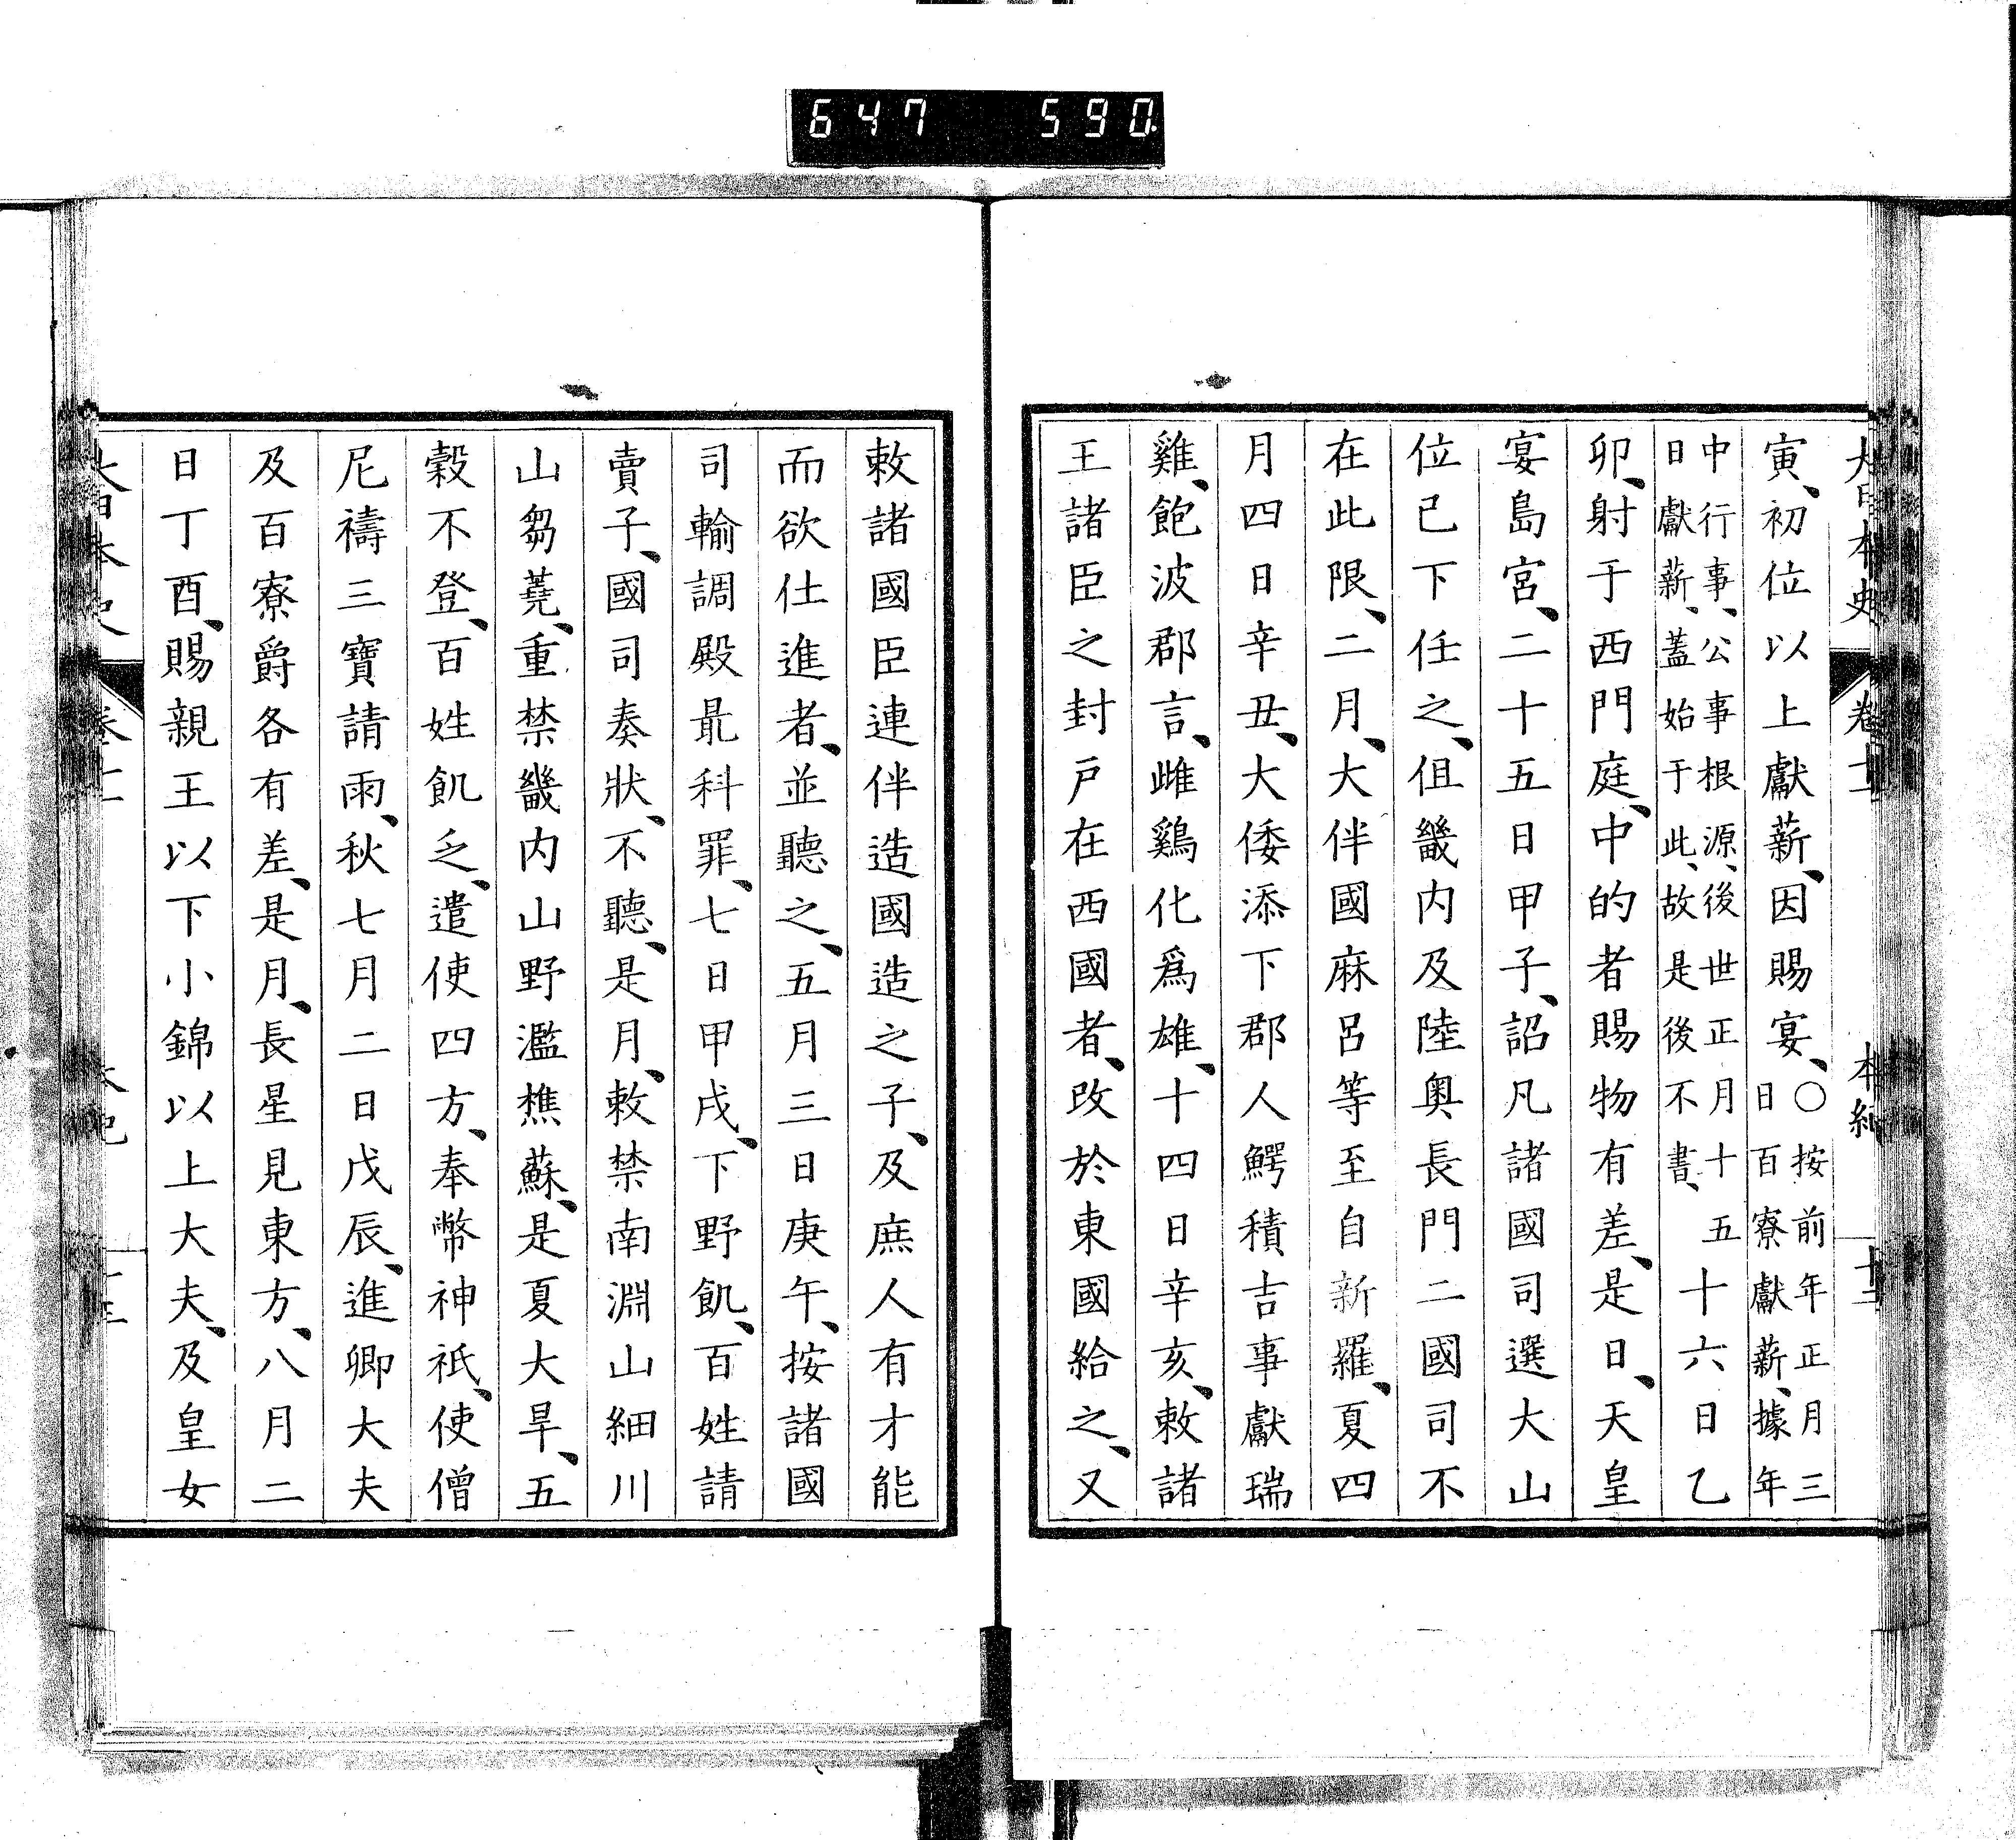 647 590
大日本史 卷十 本紀 十二
寅、初位以上獻薪、因賜宴、○按前年正月三日百寮獻薪、據年
中行事、公事根源、後世正月十五日獻薪、蓋始于此、故是後不書、十六日乙
卯、射于西門庭、中的者賜物有差、是日、天皇
宴島宮、二十五日甲子、詔凡諸國司選大山
位已下任之、但畿内及陸奧長門二國司不
在此限、二月、大伴國麻呂等至自新羅、夏四
月四日辛丑、大倭添下郡人鰐積吉事獻瑞
雞、飽波郡言、雌鷄化爲雄、十四日辛亥、敕諸
王諸臣之封戸在西國者、改於東國給之、又
敕諸國臣連伴造國造之子、及庶人有才能
而欲仕進者、並聽之、五月三日庚午、按諸國
司輸調殿最科罪、七日甲戌、下野飢、百姓請
賣子、國司奏狀、不聽、是月、敕禁南淵山細川
山芻蕘、重禁畿内山野濫樵蘇、是夏大旱、五
穀不登、百姓飢乏、遣使四方、奉幣神祇、使僧
尼禱三寶請雨、秋七月二日戊辰、進卿大夫
及百寮爵各有差、是月、長星見東方、八月二
日丁酉、賜親王以下小錦以上大夫、及皇女